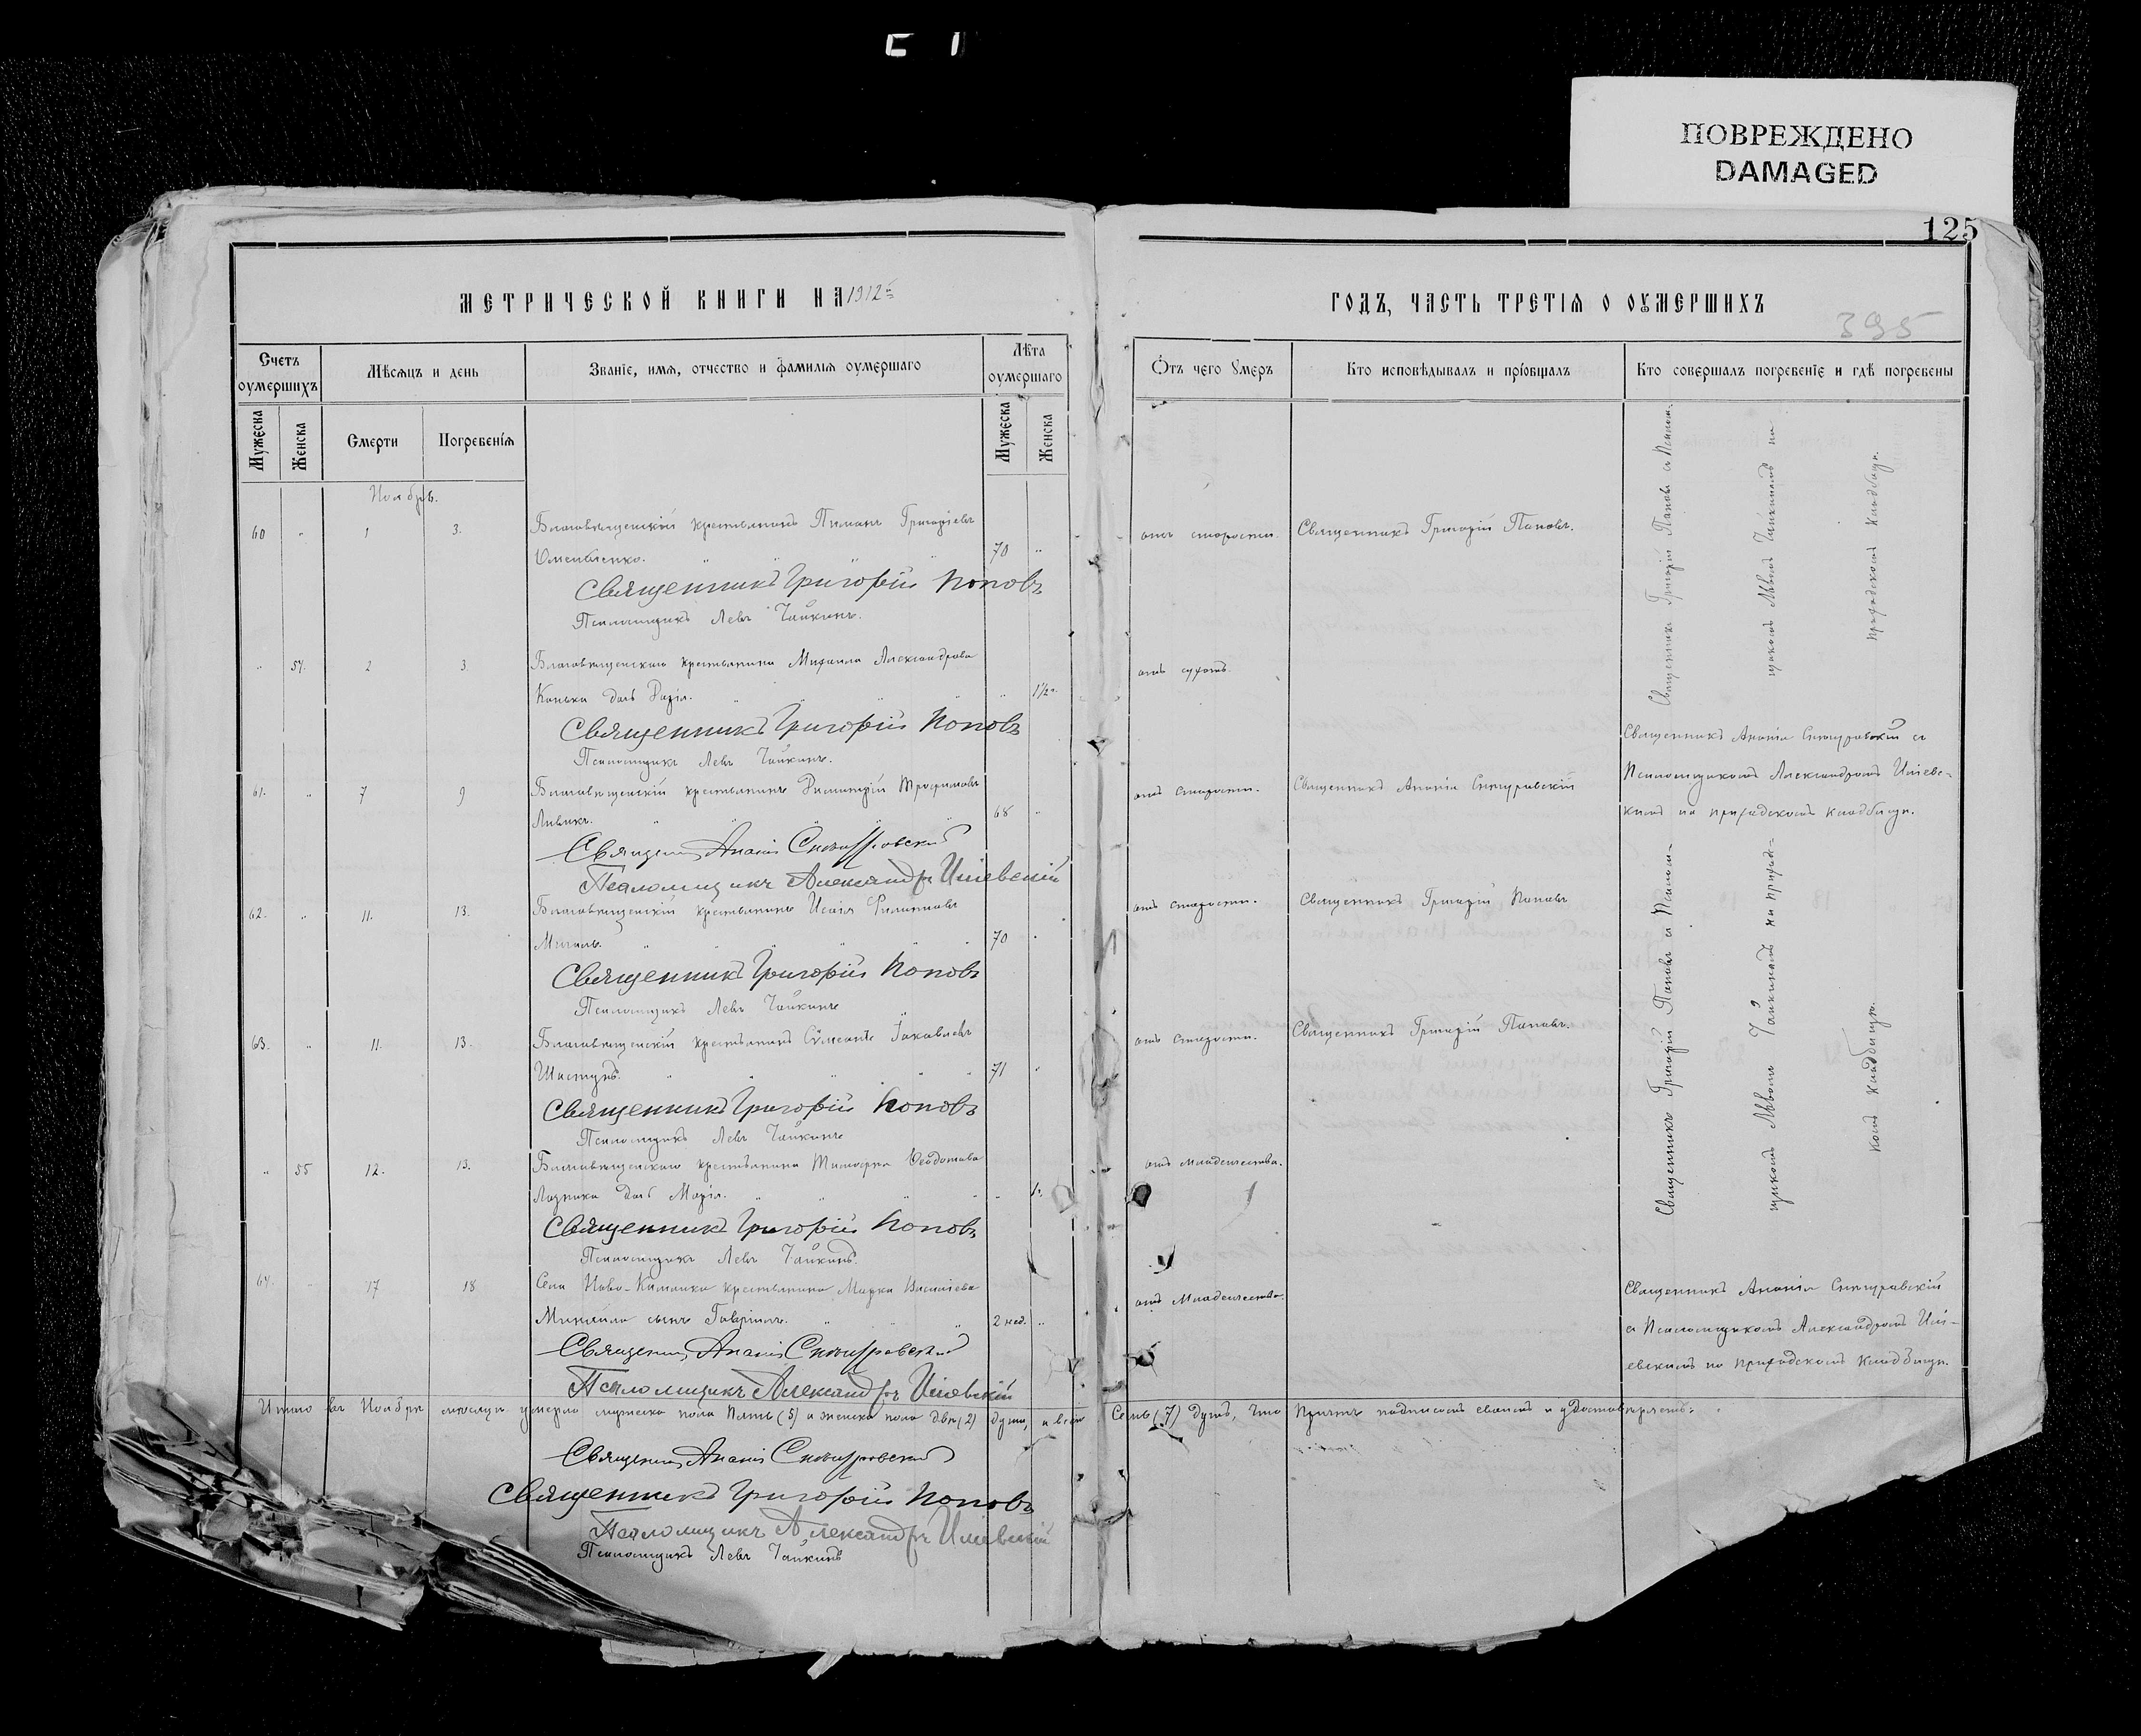 ПОВРЕЖДЕНО
DAMAGED
125
МЕТРИЧЕСКОЙ КНИГИ НА 1912 г
ГОДЪ, ЧАСТЬ ТРЕТІѦ О ОУМЕРШИХЪ
395
Счетъ оумершихъ
Мѣсѧцъ и день
Званіе, имѧ, отчество и фамиліѧ оумершаго
Лѣта оумершаго
Отъ чего умеръ
Кто исповѣдывалъ и пріобщалъ
Кто совершалъ погребеніе и гдѣ погребены
Мужеска
Женска
Смерти
Погребеніѧ
Мужеска
Женска
Ноябрь.
60 " 1 3. Благовѣщенскій крестьянинъ Пименъ Григоріевъ
Омельченко. 70 "
отъ старости. Священникъ Григорій Поповъ.
Священникъ Григорій Поповъ
Псаломщикъ Левъ Чайкинъ.
Священникъ Григорій Поповъ съ Псалом-
щикомъ Львомъ Чайкинымъ на
приходскомъ кладбищѣ.
" 54. 2 3. Благовѣщенскаго крестьянина Михаила Александрова
дочь Марія. " 1½ г.
Священникъ Григорій Поповъ
Псаломщикъ Левъ Чайкинъ.
61. " 7 9 Благовѣщенскій крестьянинъ Димитрій Трофимовъ
68 "
отъ старости. Священникъ Ананія
Священникъ Ананія
Псаломщикомъ Александромъ
кимъ на приходскомъ кладбищѣ.
Священникъ Ананія
Псаломщикъ Александръ
62. " 11. 13. Благовѣщенскій крестьянинъ Исаія Филипповъ
70 "
отъ старости. Священникъ Григорій Поповъ
Священникъ Григорій Поповъ
Псаломщикъ Левъ Чайкинъ
Священникъ Григорій Поповъ съ Псалом-
щикомъ Львомъ Чайкинымъ на приход-
комъ кладбищѣ.
63. " 11. 13. Благовѣщенскій крестьянинъ Сѵмеонъ Іаковлевъ
Шастунъ. 71 "
отъ старости. Священникъ Григорій Поповъ.
Священникъ Григорій Поповъ
Псаломщикъ Левъ Чайкинъ
" 55 12. 13. Благовѣщенскаго крестьянина Тимофея Ѳеодотова
дочь Марія. " 1 г.
отъ младенчества.
Священникъ Григорій Поповъ
Псаломщикъ Левъ Чайкинъ.
64. " 17 18 Села Ново- крестьянина Марка Васильева
сынъ Гавріилъ. 2 нед. "
отъ младенчества.
Священникъ Ананія
съ Псаломщикомъ Александромъ
на приходскомъ кладбищѣ.
Священникъ Ананія
Псаломщикъ Александръ
Итого въ Ноябрѣ мѣсяцѣ умерло мужеска пола Пять (5) и женска пола двѣ (2) души, а всего Семь (7) душъ, что Причтъ подписомъ своимъ и удостовѣряетъ:
Священникъ Ананія
Священникъ Григорій Поповъ
Псаломщикъ Александръ
Псаломщикъ Левъ Чайкинъ